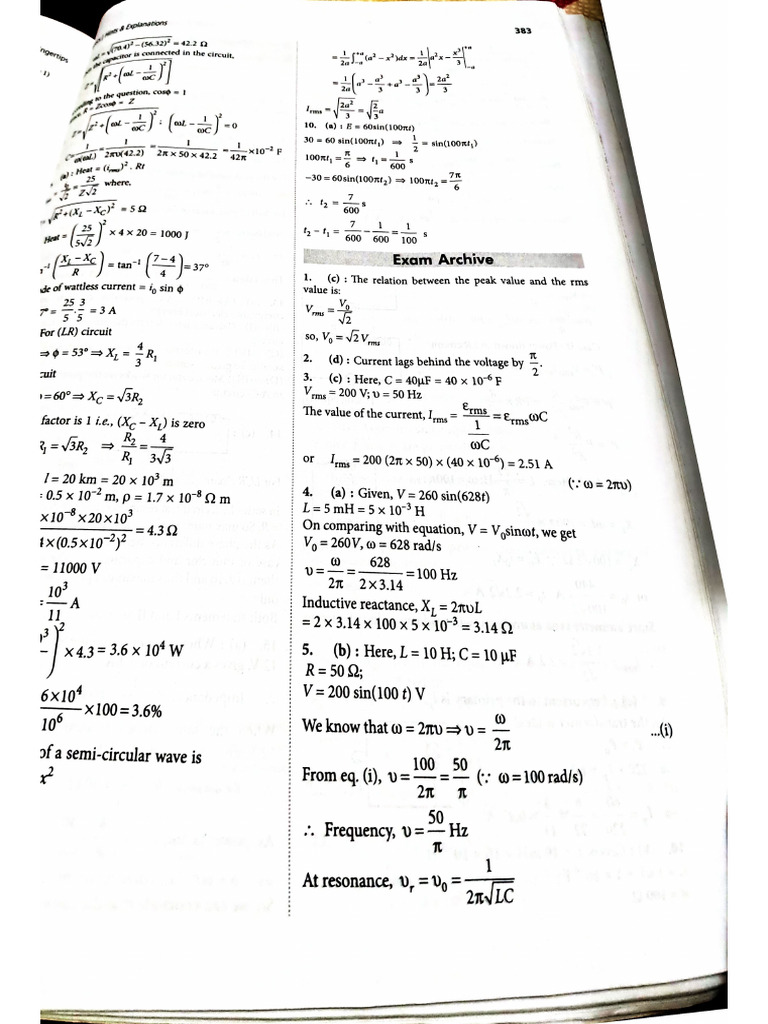 Hints & Explanations
383
ngertips
√(70.4)² − (56.32)² = 42.2 Ω
the capacitor is connected in the circuit,
√[R² + (ωL − 1/ωC)²]
to the question, cosϕ = 1
R = Zcosϕ = Z
Z = √Z² + (ωL − 1/ωC)² ; (ωL − 1/ωC) = 0
C = 1/ω(ωL) = 1/2πυ(42.2) = 1/2π × 50 × 42.2 = 1/42π × 10⁻² F
(a) : Heat = (i_rms)² . Rt
= 25/Z√2 where,
√R² + (X_L − X_C)² = 5 Ω
Heat = (25/5√2)² × 4 × 20 = 1000 J
(X_L − X_C/R) = tan⁻¹ (7 − 4/4) = 37°
de of wattless current = i₀ sin ϕ
7° = 25/5 · 3/5 = 3 A
For (LR) circuit
⇒ ϕ = 53° ⇒ X_L = 4/3 R₁
cuit
= 60° ⇒ X_C = √3R₂
factor is 1 i.e., (X_C − X_L) is zero
R₁ = √3R₂ ⇒ R₂/R₁ = 4/3√3
l = 20 km = 20 × 10³ m
0.5 × 10⁻² m, ρ = 1.7 × 10⁻⁸ Ω m
× 10⁻⁸ × 20 × 10³/π × (0.5 × 10⁻²)² = 4.3 Ω
= 11000 V
10³/11 A
)² × 4.3 = 3.6 × 10⁴ W
6 × 10⁴/10⁶ × 100 = 3.6%
of a semi-circular wave is
x²
= 1/2a ∫₋ₐ⁺ᵃ (a² − x²)dx = 1/2a |a²x − x³/3|₋ₐ⁺ᵃ
= 1/2a (a³ − a³/3 + a³ − a³/3) = 2a²/3
I_rms = √2a²/3 = √2/3 a
10. (a) : E = 60sin(100πt)
30 = 60 sin(100πt₁) ⇒ 1/2 = sin(100πt₁)
100πt₁ = π/6 ⇒ t₁ = 1/600 s
−30 = 60sin(100πt₂) ⇒ 100πt₂ = 7π/6
∴ t₂ = 7/600 s
t₂ − t₁ = 7/600 − 1/600 = 1/100 s
Exam Archive
1. (c) : The relation between the peak value and the rms
value is:
V_rms = V₀/√2
so, V₀ = √2 V_rms
2. (d) : Current lags behind the voltage by π/2.
3. (c) : Here, C = 40μF = 40 × 10⁻⁶ F
V_rms = 200 V; υ = 50 Hz
The value of the current, I_rms = ε_rms/(1/ωC) = ε_rms ωC
or I_rms = 200 (2π × 50) × (40 × 10⁻⁶) = 2.51 A
(∵ ω = 2πυ)
4. (a) : Given, V = 260 sin(628t)
L = 5 mH = 5 × 10⁻³ H
On comparing with equation, V = V₀sinωt, we get
V₀ = 260V, ω = 628 rad/s
υ = ω/2π = 628/2 × 3.14 = 100 Hz
Inductive reactance, X_L = 2πυL
= 2 × 3.14 × 100 × 5 × 10⁻³ = 3.14 Ω
5. (b) : Here, L = 10 H; C = 10 μF
R = 50 Ω;
V = 200 sin(100 t) V
We know that ω = 2πυ ⇒ υ = ω/2π ...(i)
From eq. (i), υ = 100/2π = 50/π (∵ ω = 100 rad/s)
∴ Frequency, υ = 50/π Hz
At resonance, υ_r = υ₀ = 1/2π√LC